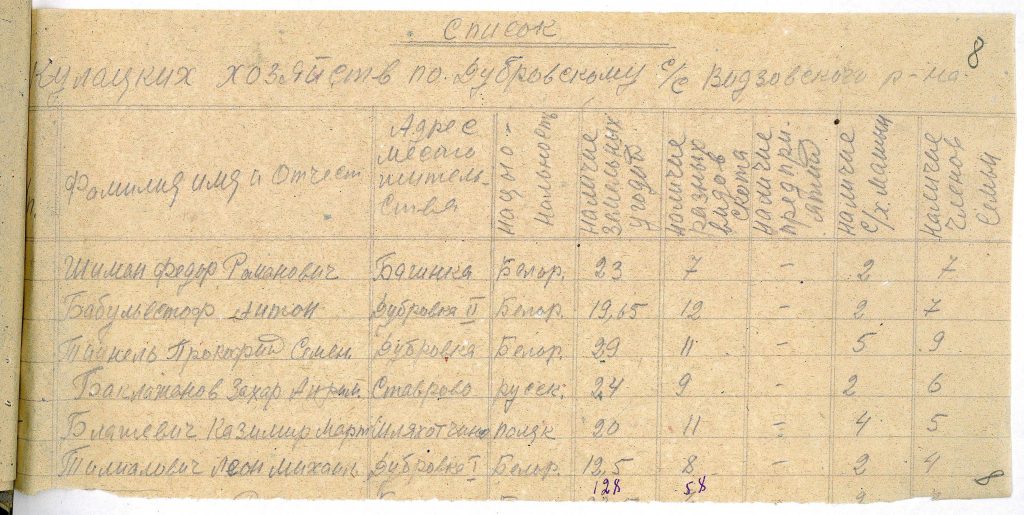 Список
8
Кулацких хозяйств по Дубровскому с/с Видзовского р-на
Фамилия имя и Отчест
Адрес места жительства
национальность
наличие земельных угодий
наличие разных видов скота
наличие предприятий
наличие с/х машин
наличие членов семьи
Шиман Федор Романович Багинка Белор. 23 7 - 2 7
Антон Дубровка II Белор. 19,65 12 - 2 7
Прокофий Семен. Дубровка Белор. 29 11 - 5 9
Баклажанов Захар Ставрово русск. 24 9 - 2 6
Блажевич Казимир Март поляк 20 11 - 4 5
Леон Михаил Дубровка I Белор. 12,5 8 - 2 4
128 58
8